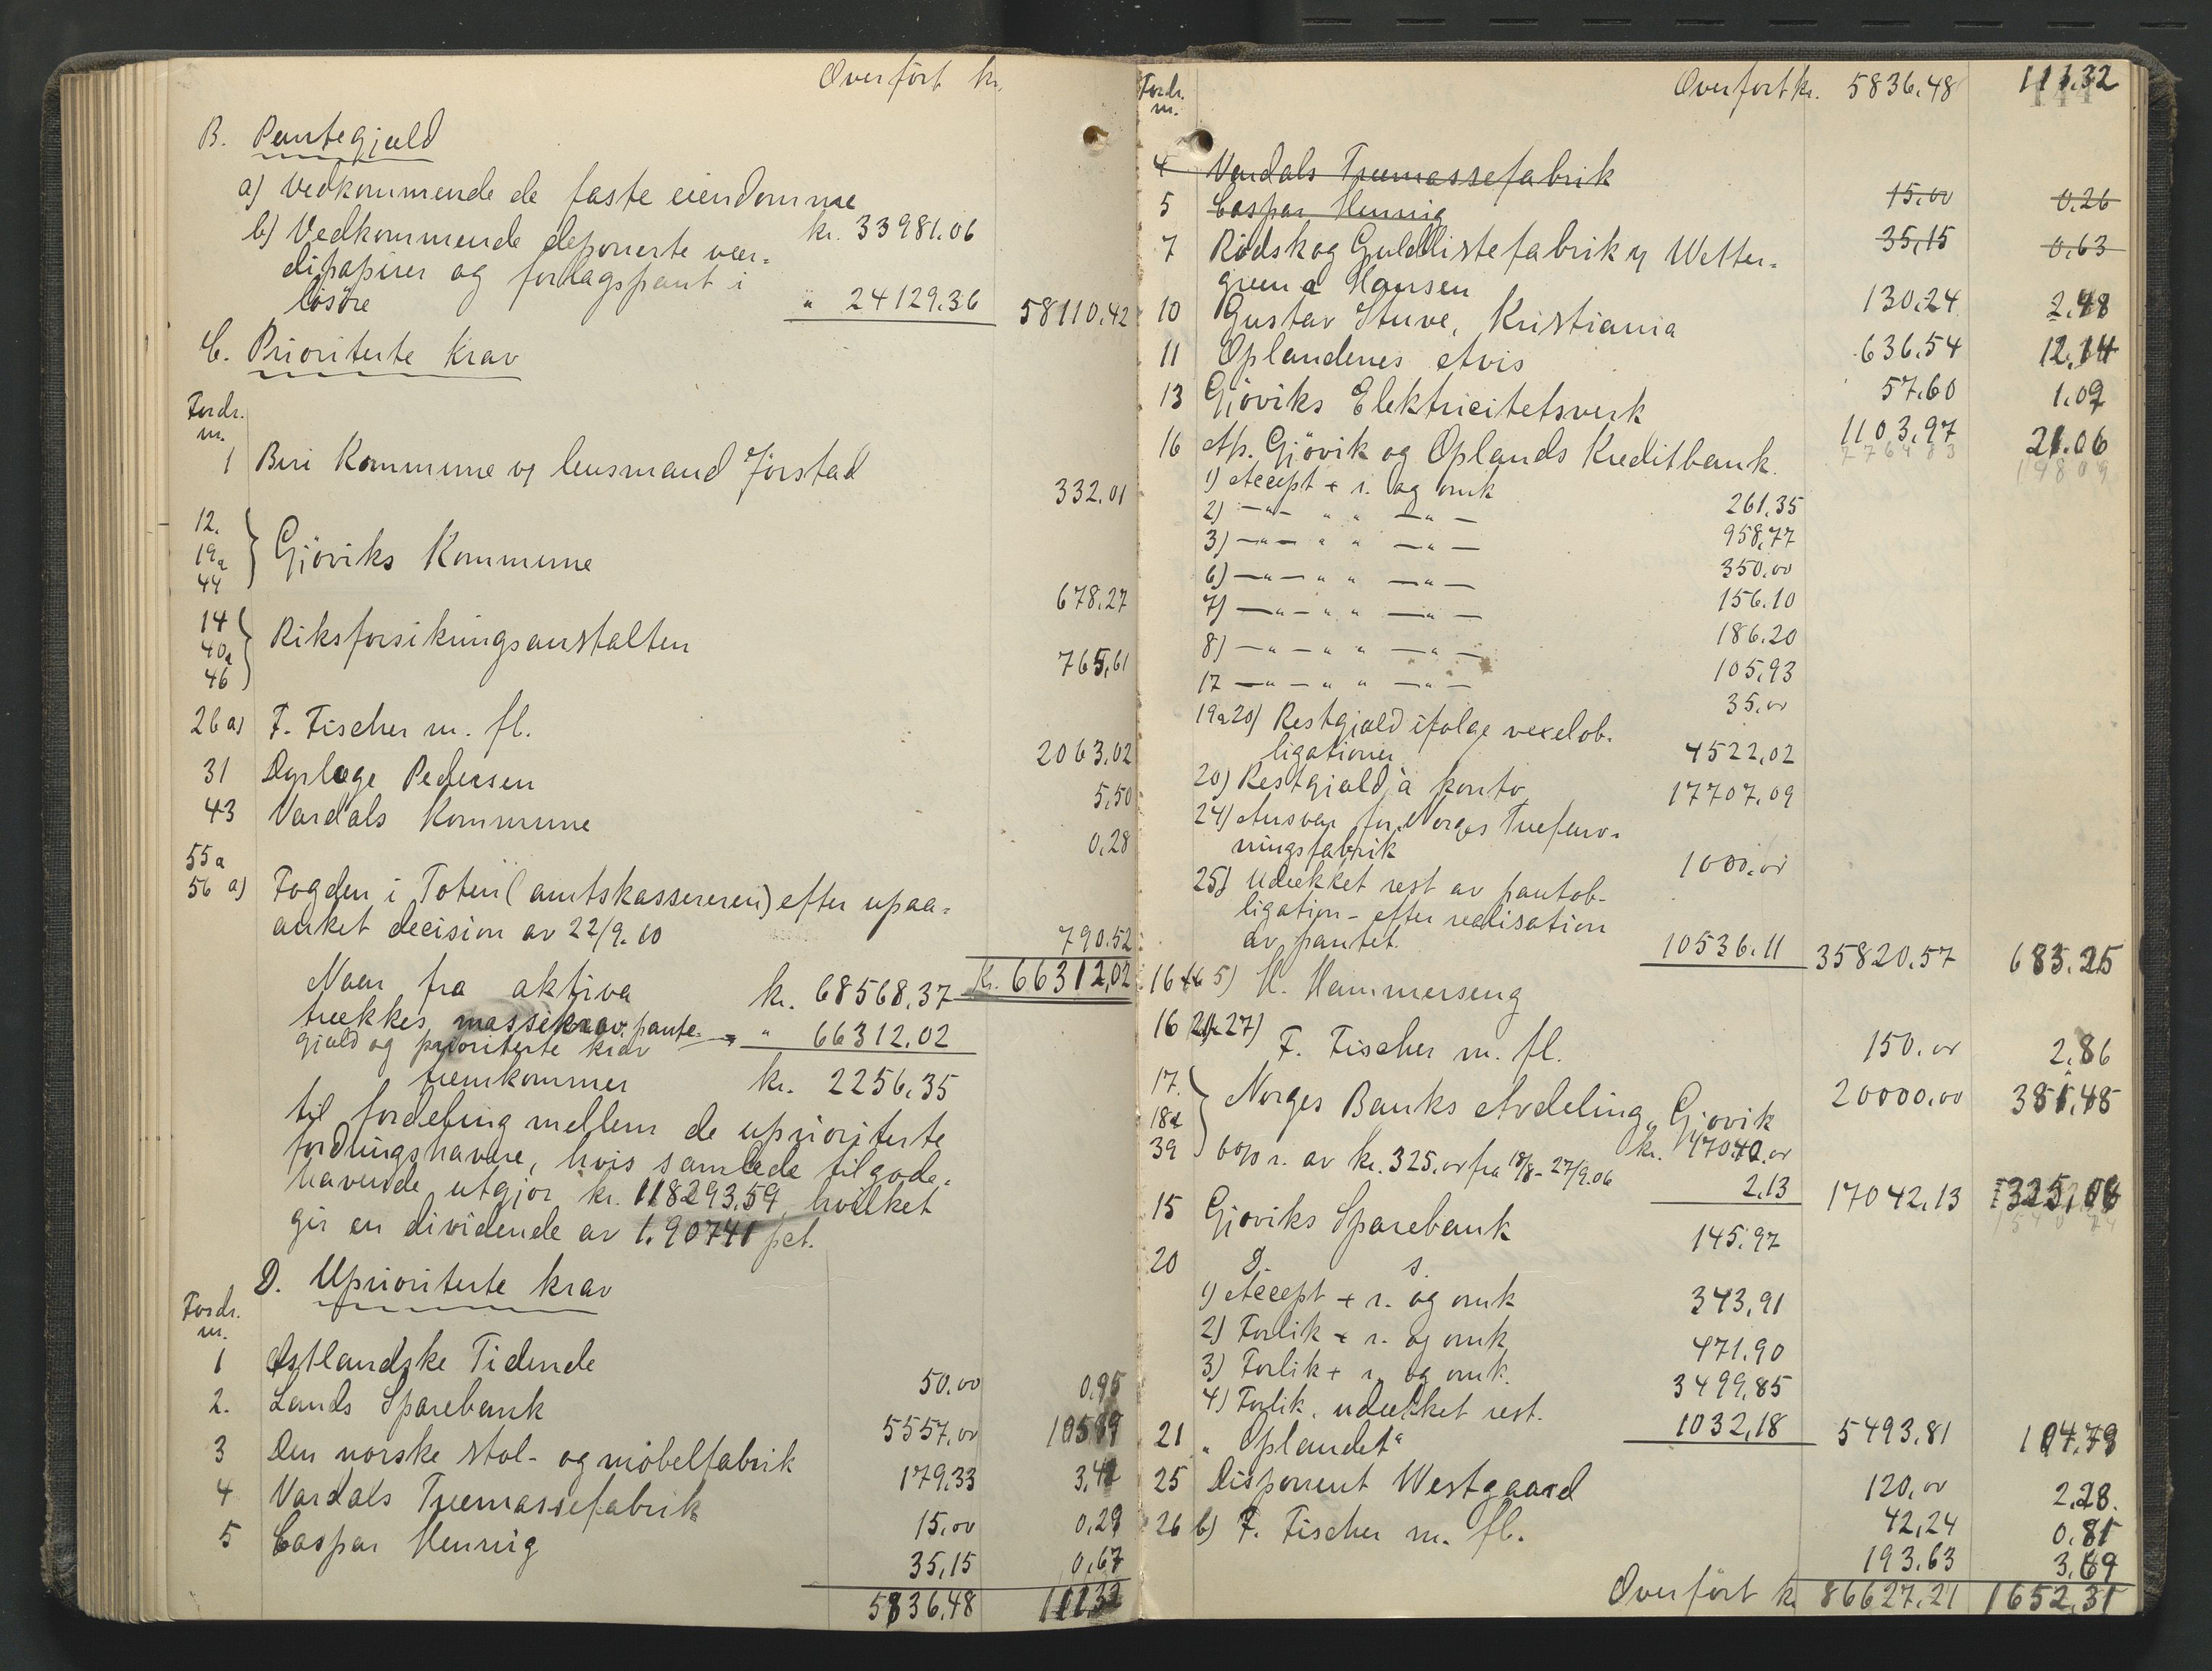 Overført kr.
B. Pantegjæld
a) Vedkommende de faste eiendomme
kr. 33981.06
b) Vedkommende deponerte vær-
dipapirer og forlagspant i
løsøre " 24129.36 58110.42
C. Prioriterte krav
Fordr.
nr.
1 Biri Kommune v/ lensmand Jørstad 332.01
12.
19a
44
Gjøviks Kommune 678.27
14
40a
46
Riksforsikringsanstalten 765,61
26 a) F. Fischer m. fl. 2063.02
31 Dyrlæge Pedersen 5,50
43 Vardals Kommune 0.28
55a
56 a) Fogden i Toten (amtskassereren) efter upaa-
anket decision av 22/9.10 790.52
kr. 66312,02
Naar fra aktiva kr. 68568,37
trækkes massekrav, pante-
gjæld og prioriterte krav " 66312.02
fremkommer kr. 2256,35
til fordeling mellem de uprioriterte
fordringshavere, hvis samlede tilgode-
havende utgjør kr. 118293.59, hvilket
gir en dividende av 1.90741 pct.
D. Uprioriterte krav
Fordr.
nr.
1 Østlandske Tidende 50.00 0.95
2. Lands Sparebank 5557.00 105 99
3 Den norske stol- og møbelfabrik 179.33 3,42
4 Vardals Træmassefabrik 15.00 0.29
5 Caspar Hennig 35,15 0,67
5836,48 111 32
Fordr.
nr.
Overført kr. 5836.48 111.32
4 Vardals Træmassefabrik 15.00 0.26
5 Caspar Hennig 35,15 0.63
7 Rødskog Guldlistefabrik v/ Wetter-
green & Hansen 130.24 2,48
10 Gustav Stuve, Kristiania 636.54 12.14
11 Oplandenes Avis 57.60 1.09
13 Gjøviks Elektricitetsverk 1103.97 21.06
16 A/s. Gjøvik og Oplands Kreditbank.
1) Accept + r. og omk 261.35
2) —"— " " —"— 958,77
3) —"— " " —"— 350.00
6) —"— " " —"— 156.10
7) —"— " " —"— 186.20
8) —"— " " —"— 105,93
17 —"— " " —"— 35.00
19a20) Restgjæld ifølge vexelob-
ligationer 4522,02
20) Restgjæld à konto 17707.09
24) Ansvar for Norges Træforo-
ningsfabrik 1000.00
25) Udækket rest av pantob-
ligation - efter realisation
av pantet. 10536.11 35820.57 683.25
16 5) H. Hammerseng 150.00 2,86
16 27) F. Fischer m. fl. 20000.00 381,48
17.
18a
39
Norges Banks Avdeling, Gjøvik kr. 17040.00
6% r. av kr. 325.00 fra 18/8 - 27/9.06 2.13 17042,13 325,06
15 Gjøviks Sparebank 145.97
20 D. s.
1) Accept + r. og omk 343,91
2) Forlik + r. og omk 471.90
3) Forlik + r. og omk. 3499,85
4) Forlik, udækket rest. 1032,18 5493.81 104.79
21 "Oplandet" 120,00 2,28.
25 Disponent Westgaard 42,24 0.81
26 b) F. Fischer m. fl. 193.63 3,69
Overført kr. 86627.21 1652,31